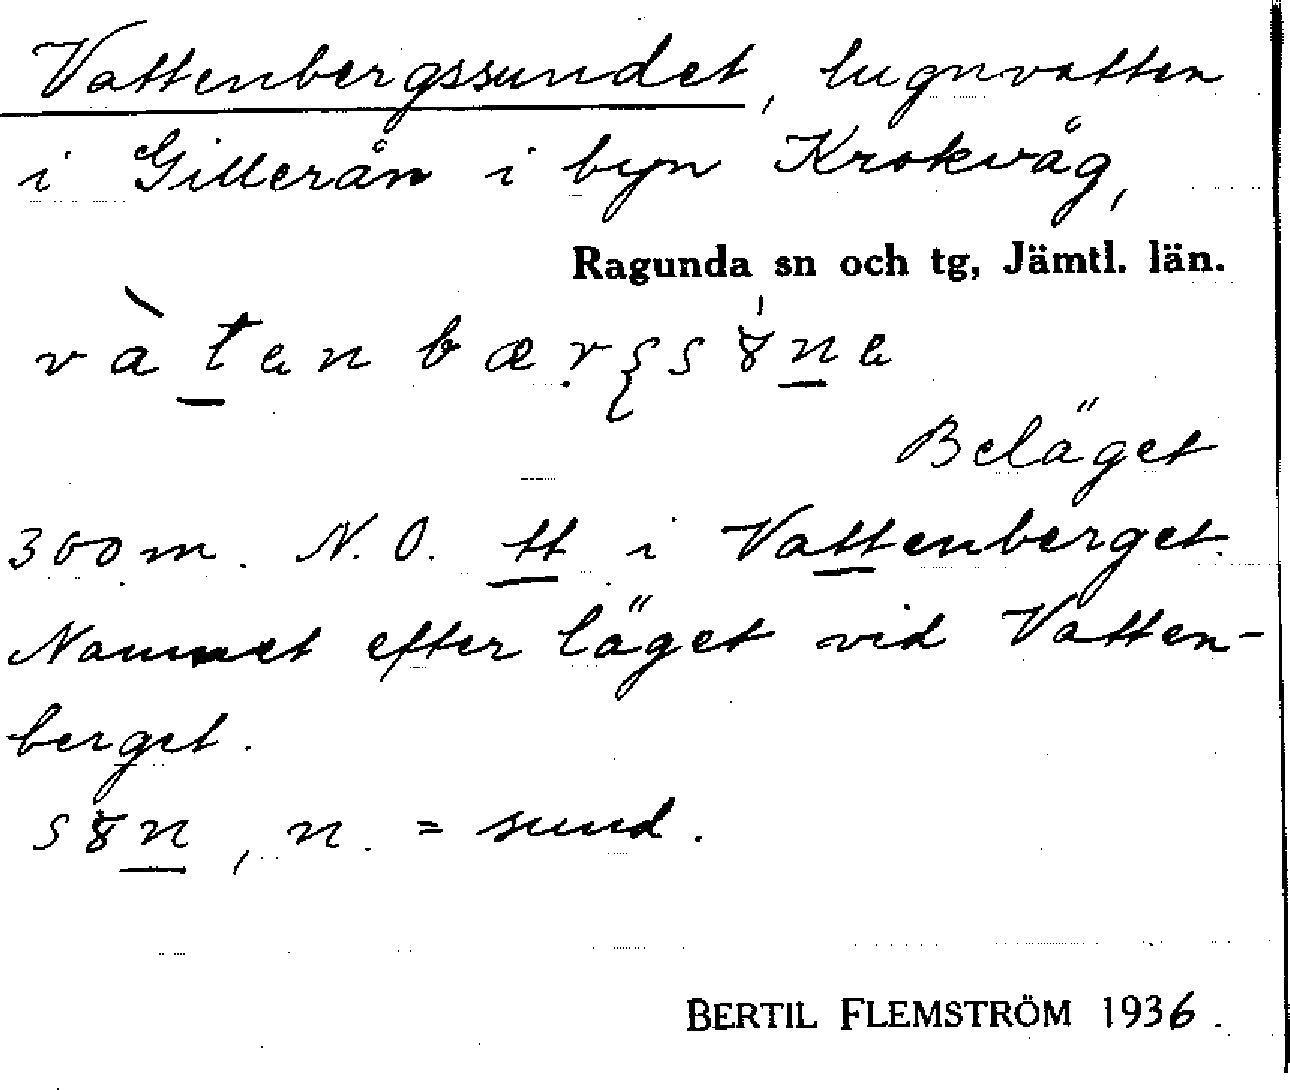 Vattenbergssundet, lugnvatten
i Gillerån i byn Krokvåg,
Ragunda sn och tg, Jämtl. län.
Beläget
300 m. N.O. tt i Vattenberget.
Nammet efter läget vid Vatten-
berget.
n. = sund.
BERTIL FLEMSTRÖM 1936.